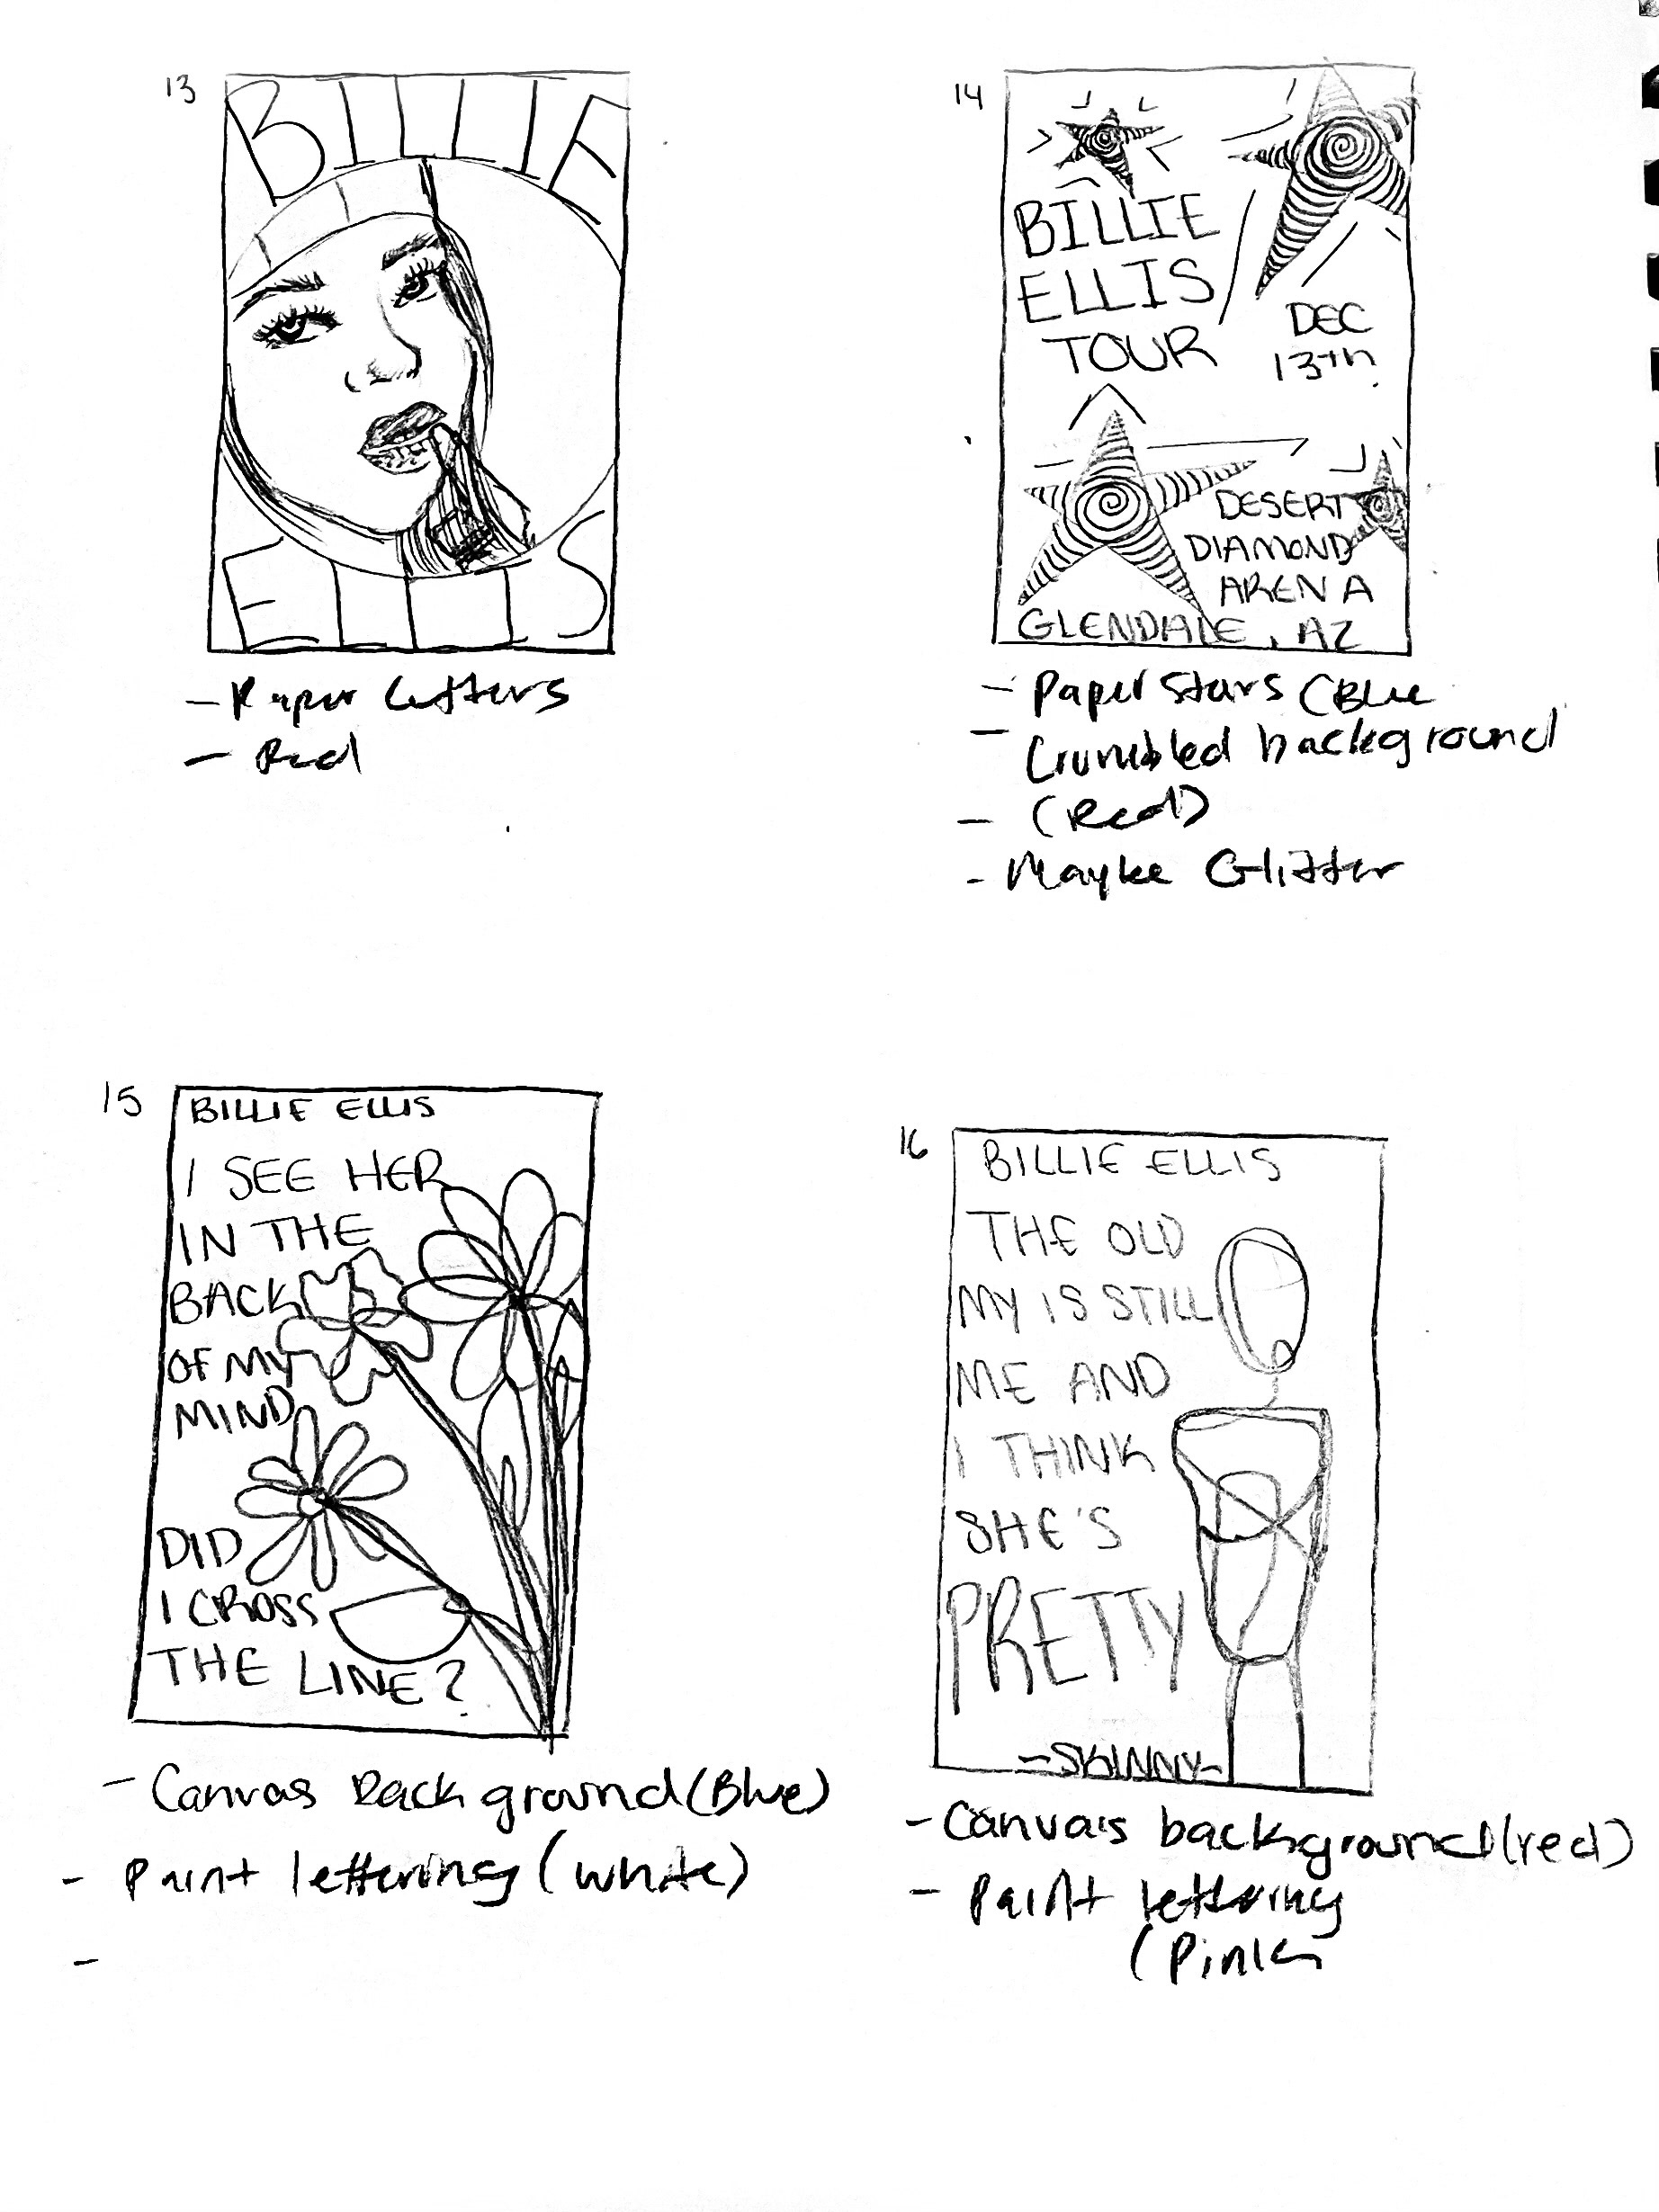 13
BILLIE
ELLIS
- Paper Letters
- Red
14
BILLIE
ELLIS
TOUR
DEC
13TH
DESERT
DIAMOND
ARENA
GLENDALE, AZ
- Paper Stars (Blue
- Crumbled background
- (Red)
- Maybe Glitter
15
BILLIE ELLIS
I SEE HER
IN THE
BACK
OF MY
MIND
DID
I CROSS
THE LINE?
- Canvas Background (Blue)
- Paint lettering (white)
-
16
BILLIE ELLIS
THE OLD
MY IS STILL
ME AND
I THINK
SHE'S
PRETTY
-SKINNY-
- Canvas background (red)
- Paint lettering
(Pink